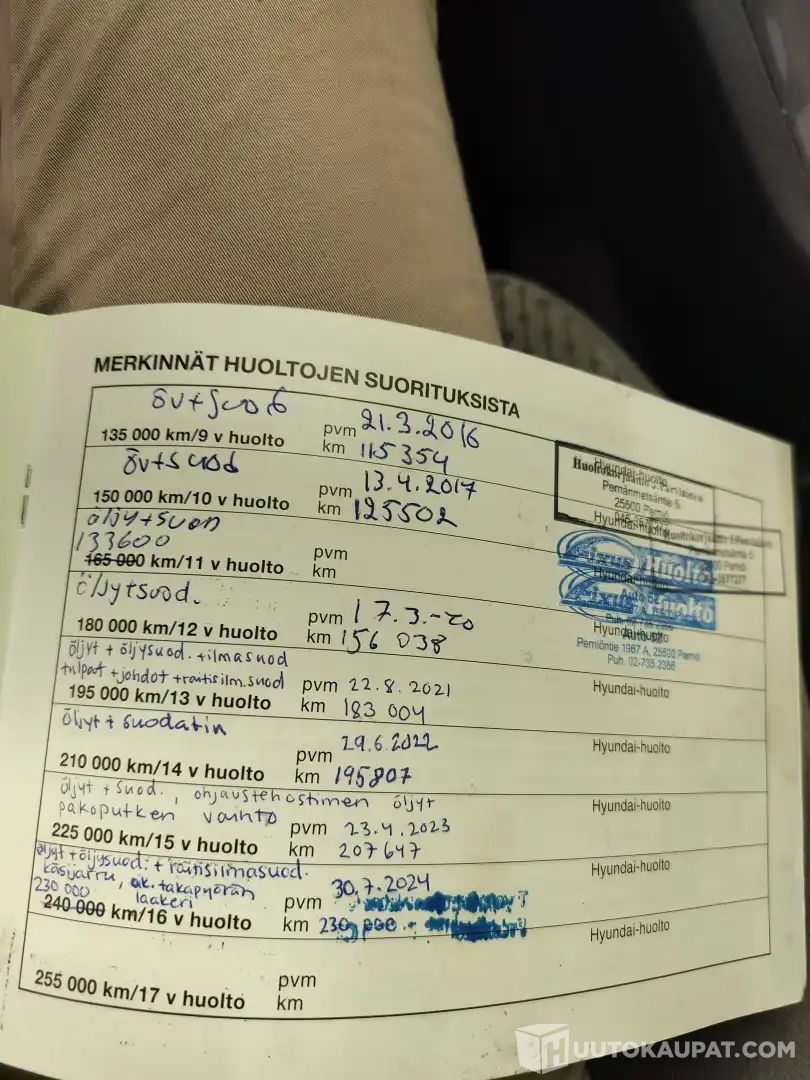 MERKINNÄT HUOLTOJEN SUORITUKSISTA
öv+suod
135 000 km/9 v huolto
pvm 21.3.2016
km 115354
Hyundai-huolto
Pernänmetsäntie 5
25500 Perniö
öv+suod
150 000 km/10 v huolto
pvm 13.4.2017
km 125502
Hyundai-huolto
öljy+suod
133600
165 000 km/11 v huolto
pvm
km
Fixus Huolto
Hyundai-huolto
öljytsuod.
180 000 km/12 v huolto
pvm 17.3.-20
km 156 038
Fixus Huolto
Hyundai-huolto
Perniöntie 1967 A, 25500 Perniö
Puh. 02-735 2366
öljyt + öljysuod. + ilmasuod
tulpat + johdot + raitisilm.suod
195 000 km/13 v huolto
pvm 22.8.2021
km 183 004
Hyundai-huolto
öljyt + suodatin
210 000 km/14 v huolto
pvm 29.6.2022
km 195807
Hyundai-huolto
öljyt + suod., ohjaustehostimen öljyt
pakoputken vaihto
225 000 km/15 v huolto
pvm 23.4.2023
km 207647
Hyundai-huolto
öljyt + öljysuod. + raitisilmasuod.
käsijarru, oik. takapyörän
laakeri
230 000
240 000 km/16 v huolto
pvm 30.7.2024
km 230 000
Hyundai-huolto
255 000 km/17 v huolto
pvm
km
Hyundai-huolto
HUUTOKAUPAT.COM